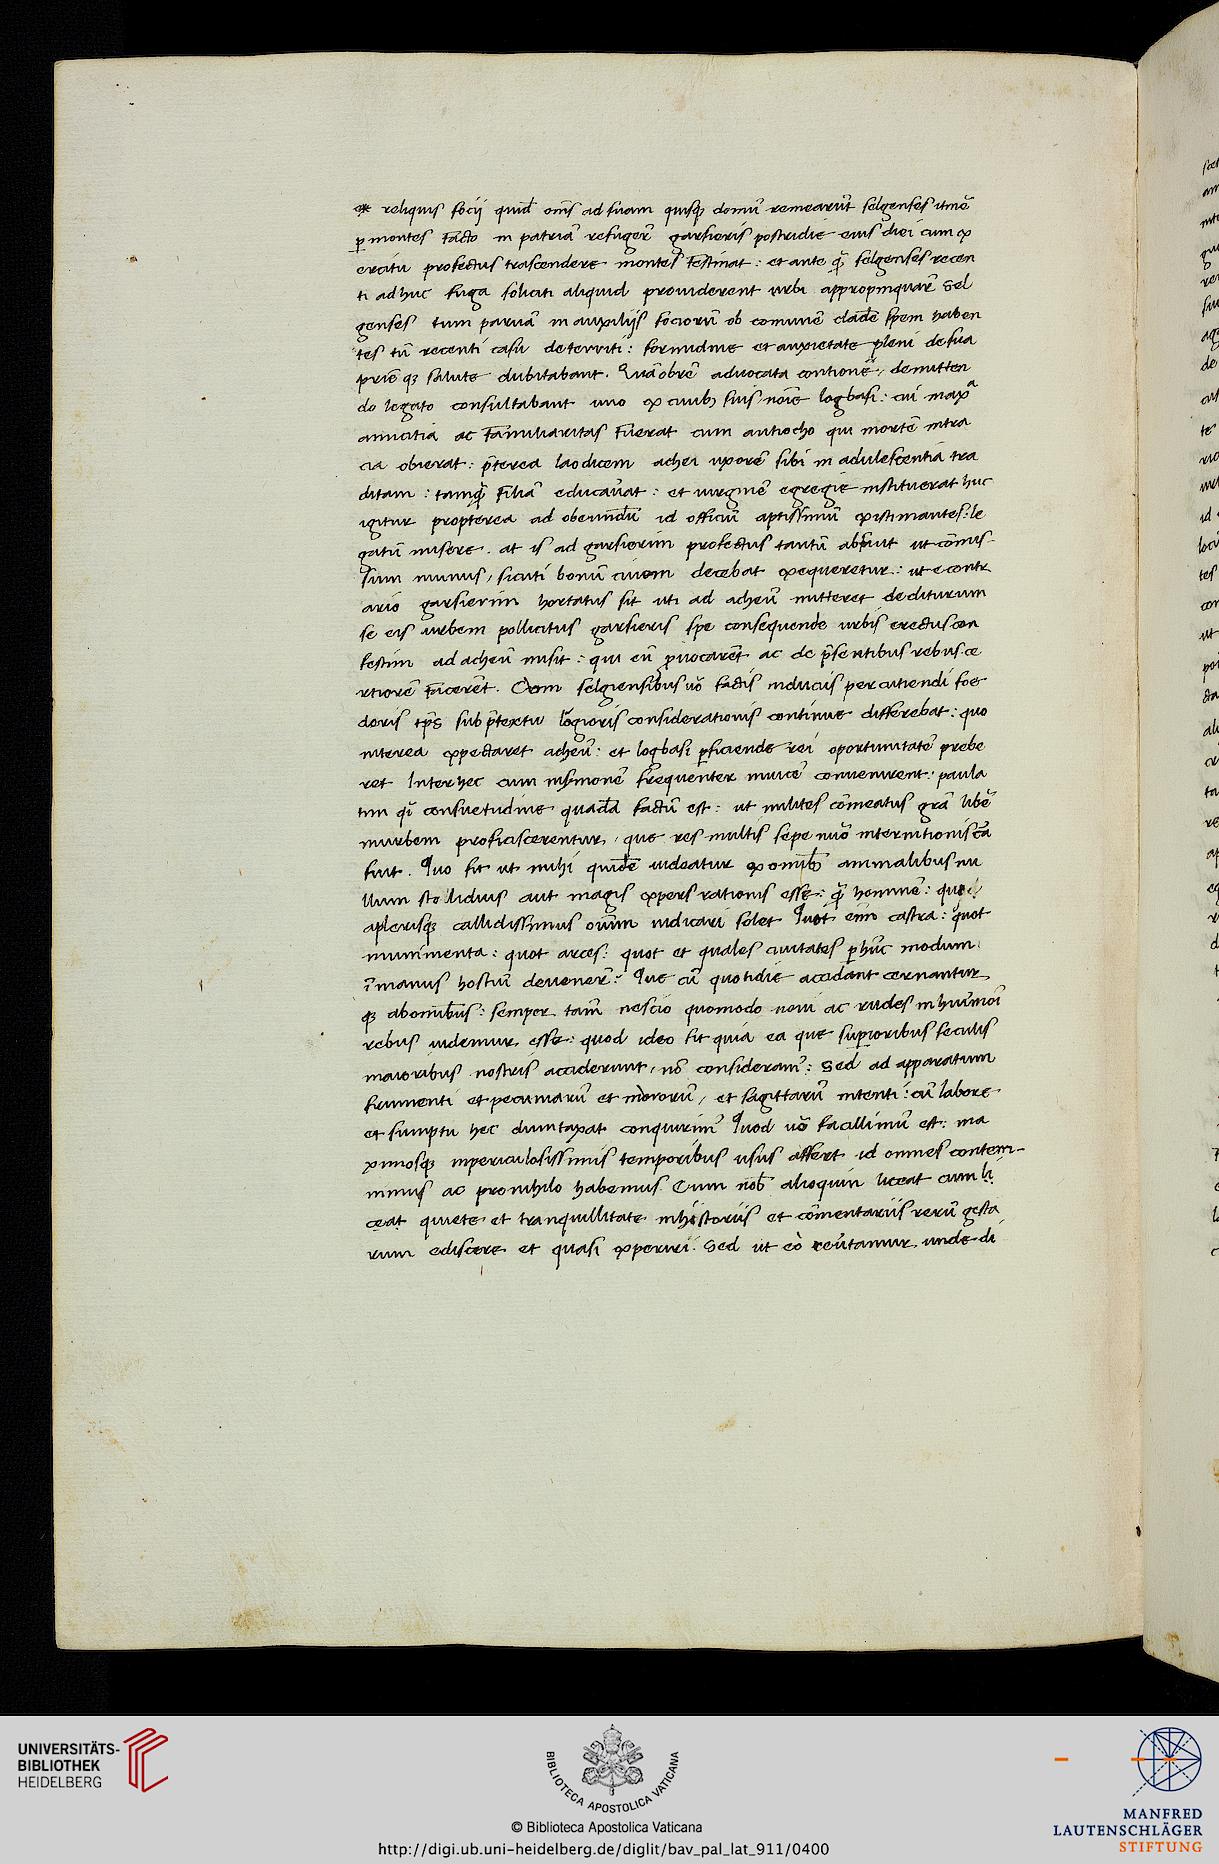 reliquis socij quid̄ om̄s ad suam quisq; domū remearūt selgenses itinē
ꝑ montes facto in patriā refugerẽ garsieris postridie eius diei cum ex
ercitu profectus trascendere montes festinat: et ante q̄ selgenses recen
ti ad huc fuga soliciti aliquid prouiderent urbi appropinquarẽ Sel
genses tum paruā in auxilijs sociorū ob comunē cladē spem haben
tes tū recenti casu deterriti: formidine et anxietate pleni de sua
prieq; salute dubitabant. Quāobrē aduocata contionē, demitten
do legato consultabant uno ex ciuib; suis, noīe logbasi: cui maxa
amicitia ac familiaritas fuerat cum antiocho qui mortē intra
cia obierat: p̄terea laodicem achei uxorē sibi in adulescentia tra
ditam: tamq̄ filiā educauat: et uirginē egregie instituerat huc
igitur propterea ad obeundū id officiū aptissimū existimantes: le
gatū misere. at is ad garsierim profectus tantū abfuit ut cōmis-
sum munus, sicuti bonū ciuem decebat exequeretur: ut e contr
ario garsierim hortatus sit uti ad acheū mitteret dediturum
se eis urbem pollicitus garsieris spe consequende urbis erectus con
festim ad acheū misit: qui eū ꝓuocarēt ac de p̄sentibus rebus ce
rtiorē facerēt. Cum selgiensibus uō factis inducijs percutiendi foe
deris tp̄s sub p̄textu lōgioris considerationis continue differebat: quo
interea expectaret acheū: et logbasi ꝑficiende rei oportunitatē prebe
ret Inter hec cum in sermonē frequenter inuicē conuenirent: paula
tim q̄ consuetudine quadā factū est: ut milites cōmeatus grā libē
in urbem proficiscerentur, que res multis sepe uiuō internitionis cā
fuit. Quo fit ut mihi quidē uideatur ex omīb; animalibus nu
llum stolidius aut magis expers rationis esse: q̄ hominē: quod
a plerisq; callidissimus oīum iudicari solet Quot eīm castra: quot
munimenta: quot arces: quot et quales ciuitates ꝑ hūc modum
ī manus hostiū deuenerẽ? Que cū quotidie accidant cernantur
q; ab omībus: semper tam̄ nescio quomodo noui ac rudes in huīmōi
rebus uidemur esse: quod ideo fit quia ea que superioribus seculis
maioribus nostris acciderunt, nō consideram̄: Sed ad apparatum
frumenti et pecuniarū et murorū, et sagittarū intenti: cū labore
et sumptu hec dumtaxat conquirim̄ Quod uō facillimū est: ma
ximosq; in periculosissimis temporibus usus affert id omnes contem-
nimus ac pro nihilo habemus. Cum nob̄ alioquin liceat cum li
ceat quiete et tranquillitate in historijs et cōmentarijs rerū gesta
rum ediscere et quasi experiri: Sed ut eò reūtamur unde di
UNIVERSITÄTS-
BIBLIOTHEK
HEIDELBERG
BIBLIOTECA APOSTOLICA VATICANA
© Biblioteca Apostolica Vaticana
http://digi.ub.uni-heidelberg.de/diglit/bav_pal_lat_911/0400
MANFRED
LAUTENSCHLÄGER
STIFTUNG